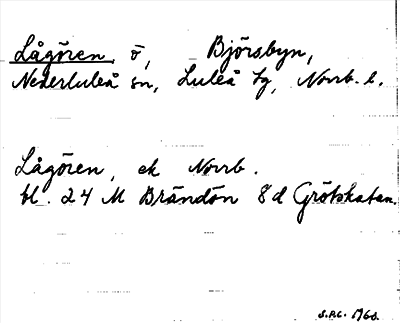 Lågören, ö, Björsbyn,
Nederluleå sn, Luleå tg, Norrb. l.
Lågören, ek Norrb.
bl. 24 M Brändön 8d Grötskatan.
1968.